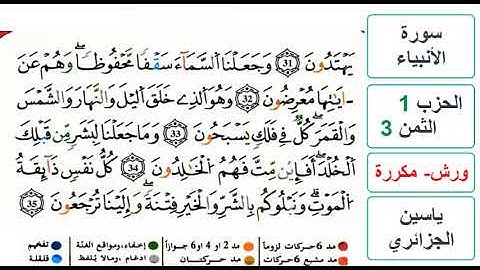 سورة
الأنبياء
الحزب 1
الثمن 3
ورش- مكررة
ياسين
الجزائري
يَهْتَدُونَ 31 وَجَعَلْنَا السَّمَآءَ سَقْفاٗ مَّحْفُوظاٗ وَهُمْ عَنَ
ـايَٰتِهَا مُعْرِضُونَ 32 وَهُوَ الذِے خَلَقَ اليْلَ وَالنَّهَارَ وَالشَّمْسَ
وَالْقَمَرَ كُلّٞ فِے فَلَكٖ يَسْبَحُونَ 33 وَمَا جَعَلْنَا لِبَشَرٖ مِّن قَبْلِكَ
اَ۬لْخُلْدَ أَفَإِيْن مِّتَّ فَهُمُ الْخَٰلِدُونَ 34 كُلُّ نَفْسٖ ذَآئِقَةُ
اُ۬لْمَوْتِ وَنَبْلُوكُم بِالشَّرِّ وَالْخَيْرِ فِتْنَةٗ وَإِلَيْنَا تُرْجَعُونَ 35
مد 6 حركات لزوماً مد 2 او 4 او 6 جوازاً إخفاء، ومواقع الغنة تفخيم
مد مشبع 6 حركات مد حركتان ادغام ، ومالا يُلفظ قلقلة